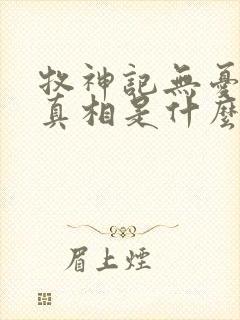 牧神記無憂
真相是什麼
眉上煙